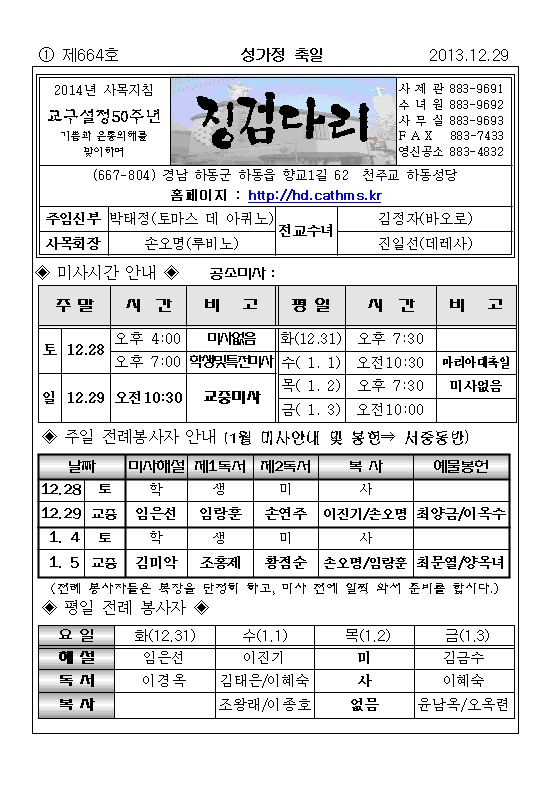 ① 제664호 성가정 축일 2013.12.29
2014년 사목지침
교구설정50주년
기쁨과 은총의해를
맞이하며
징검다리
사 제 관 883-9691
수 녀 원 883-9692
사 무 실 883-9693
F A X 883-7433
영신공소 883-4832
(667-804) 경남 하동군 하동읍 향교1길 62 천주교 하동성당
홈페이지 : http://hd.cathms.kr
주임신부 박태정(토마스 데 아퀴노) 전교수녀 김정자(바오로)
사목회장 손오명(루비노) 진일선(데레사)
◈ 미사시간 안내 ◈ 공소미사 :
주 말 시 간 비 고 평 일 시 간 비 고
토 12.28 오후 4:00 미사없음 화(12.31) 오후 7:30
오후 7:00 학생및특전미사 수( 1. 1) 오전10:30 마리아대축일
일 12.29 오전10:30 교중미사 목( 1. 2) 오후 7:30 미사없음
금( 1. 3) 오전10:00
◈ 주일 전례봉사자 안내 (1월 미사안내 및 봉헌⇒ 서중동반)
날짜 미사해설 제1독서 제2독서 복 사 예물봉헌
12.28 토 학 생 미 사
12.29 교중 임은선 임랑훈 손연주 이진기/손오명 최양금/이옥수
1. 4 토 학 생 미 사
1. 5 교중 김미악 조홍제 황점순 손오명/임랑훈 최문열/양옥녀
(전례 봉사자들은 복장을 단정히 하고, 미사 전에 일찍 와서 준비를 합시다.)
◈ 평일 전례 봉사자 ◈
요 일 화(12.31) 수(1.1) 목(1.2) 금(1.3)
해 설 임은선 이진기 미 김금수
독 서 이경옥 김태은/이혜숙 사 이혜숙
복 사 조왕래/이종호 없음 윤남옥/오옥련